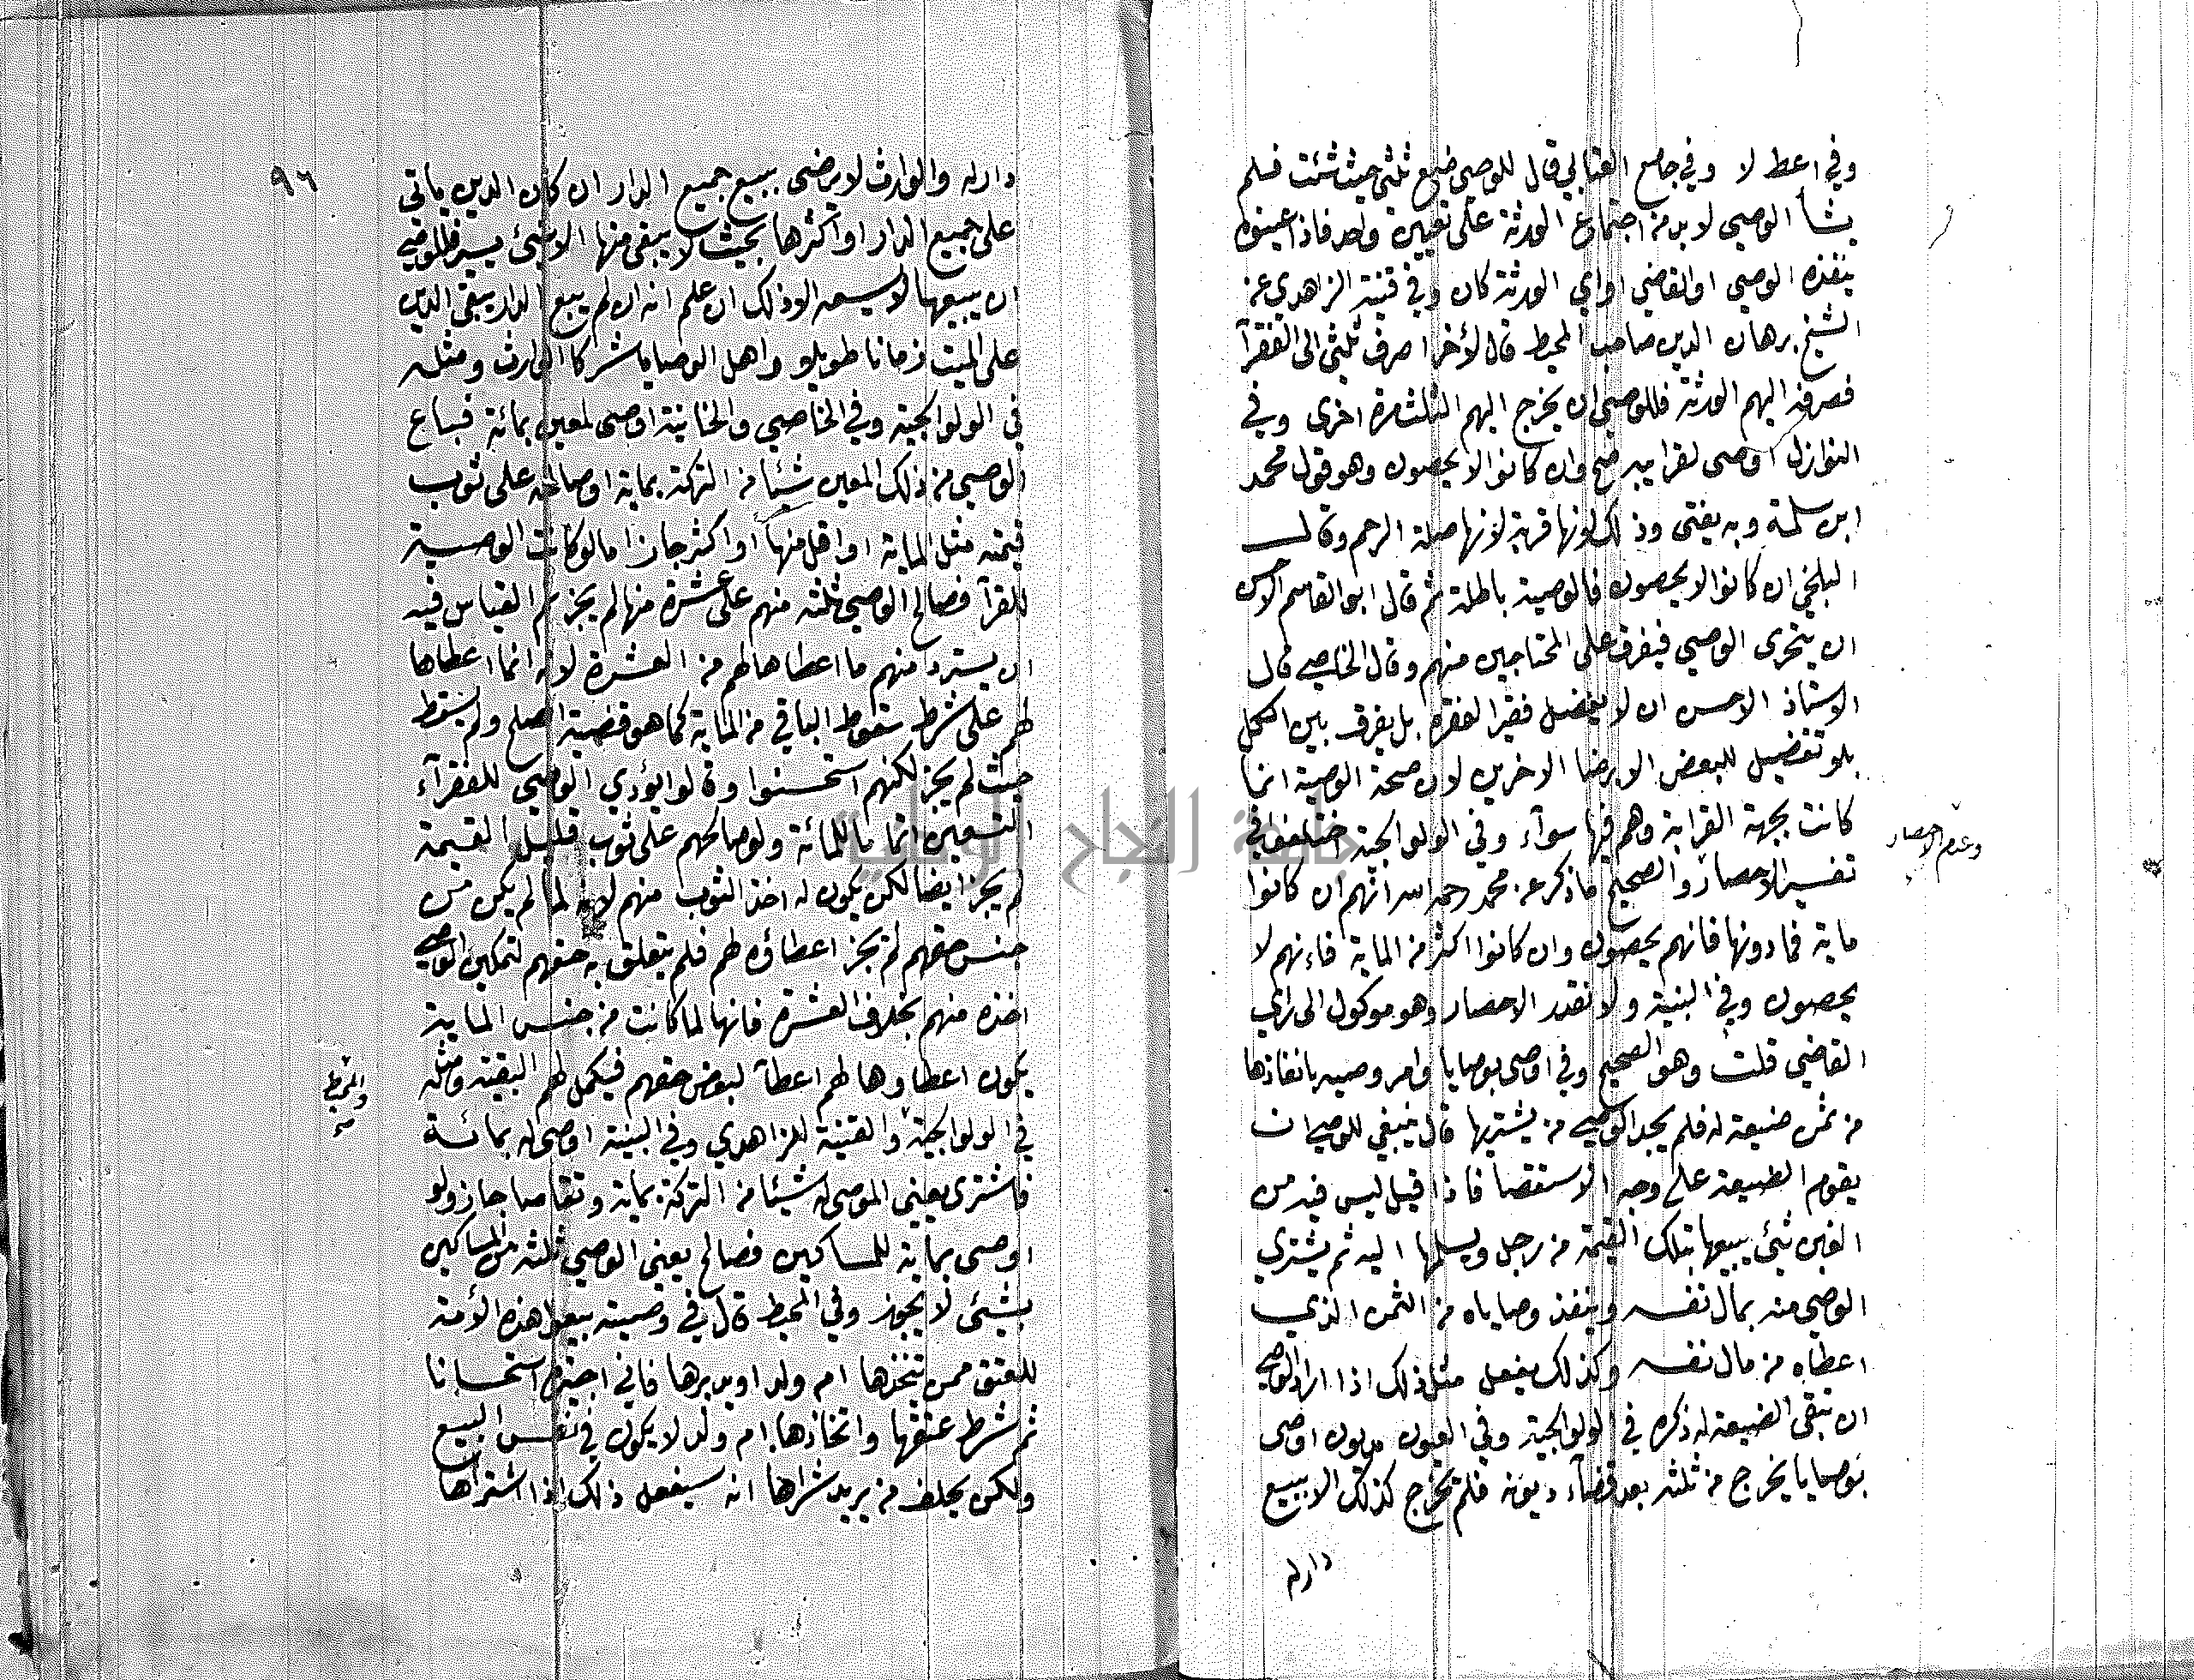 وفي اعط لا وفي جامع العتابي قال للوصي ضع ثلثي حيث شئت فلم
يشأ الوصي لا بد من اجتماع الورثة على تعيين واحد فاذا عينوه
ينفذه الوصي او القاضي او اي الورثة كان وفي قنية الزاهدي عن
الشيخ برهان الدين صاحب المحيط قال لأخر اصرف ثلثي الى الفقرآ
فصرفه اليهم الورثة فللوصي ان يخرج اليهم الثلث مرة اخرى وفي
النوازل اوصى لقرابته صح وان كانوا لا يحصون وهو قول محمد
ابن سلمة وبه يفتى وذلك لانها قربة لانها صلة الرحم وقال
البلخي ان كانوا لا يحصون فالوصية باطلة ثم قال ابو القاسم الاحسن
ان يتحرى الوصي فيفرق على المحتاجين منهم وقال الخاصي قال
الاستاذ الاحسن ان لا يفضل فقيرا لفقره بل يفرق بين الكل
بلا تفضيل للبعض الا برضا الاخرين لان صحة الوصية انما
كانت بجهة القرابة وهم فيها سوآء وفي الولوالجية اختلفوا في
وعدم الاحصار
تفسير الاحصار والصحيح ما ذكر عن محمد رحمه الله انهم ان كانوا
ماية فما دونها فانهم يحصون وان كانوا اكثر من الماية فانهم لا
يحصون وفي البنية ولا نقدر الاحصار وهو موكول الى راي
القاضي قلت وهو الصحيح وفي اوصى بوصايا وامر وصيه بانفاذها
من ثمن ضيعة له فلم يجد الوصي من يشتريها قال ينبغي للوصي ان
يقوم الضيعة على وجه الاستقصا فاذا قيل ليس فيه من
الغبن شئ يبيعها بتلك القيمة من رجل ويسلمها اليه ثم يشتري
الوصي منه بمال نفسه وينفذ وصاياه من الثمن الذي
اعطاه من مال نفسه وكذلك يفعل مثل ذلك اذا اراد الوصي
ان تبقى الضيعة له ذكره في الولوالجية وفي العيون مديون اوصى
بوصايا يخرج من ثلثه بعد قضآء ديونه فلم يخرج كذلك الا ببيع
دار له
٩٦
دار له والوارث لا يرضى ببيع جميع الدار ان كان الدين ياتي
على جميع الدار او اكثرها بحيث لا يبقى منها الا شئ يسير فللوصي
ان يبيعها لا يسعه الا ذلك ان علم انه ان لم يبع الدار يبقى الدين
على الميت زمانا طويلا واهل الوصايا شركا الوارث ومثله
في الولوالجية وفي الخاصي والخانية اوصى لمعين بمائة فباع
الوصي من ذلك المعين شيئا من التركة بماية او صالحه على ثوب
قيمته مثل الماية او اقل منها او اكثر جاز اما لو كانت الوصية
للفقرآ فصالح الوصي ثلثه منهم على عشرة منها لم يجز ثم القياس فيه
ان يسترد منهم ما اعطاها لهم من العشرة لانه انما اعطاها
لهم على شرط سقوط الباقي من الماية كما هو قضية الصلح ولم يسقط
حيث لم يجز لكنهم استحسنوا وقالوا يؤدي الوصي للفقرآء
التسعين اتماما للمائة ولو صالحهم على ثوب قليل القيمة
لم يجز ايضا لكن يكون له اخذ الثوب منهم لانه لما لم يكن من
جنس حقهم لم يجز اعطاؤه لهم فلم يتعلق به حقهم لتمكين الوصي
اخذه منهم بخلاف العشرة فانها لما كانت من جنس الماية
يكون اعطاؤها لهم اعطآ لبعض حقهم فيكمل لهم البقية ومثله
والمحيط
في الولوالجية والقنية للزاهدي وفي البنية اوصى له بمائة
فاشترى يعني الموصى له شيئا من التركة بماية وتقاصا جاز ولو
اوصى بماية للمساكين فصالح يعني الوصي ثلثه من المساكين
بشئ لا يجوز وفي المحيط قال في وصيته بيعوا هذه الأمة
للعتق ممن يتخذها ام ولد او يدبرها فاني اجيزه استحسانا
ثم شرط عتقها واتخاذها ام ولد لا يكون في نفس البيع
ولكن يحلف من يريد شرائها انه سيفعل ذلك اذا اشتراها
جامعة النجاح الوطنية